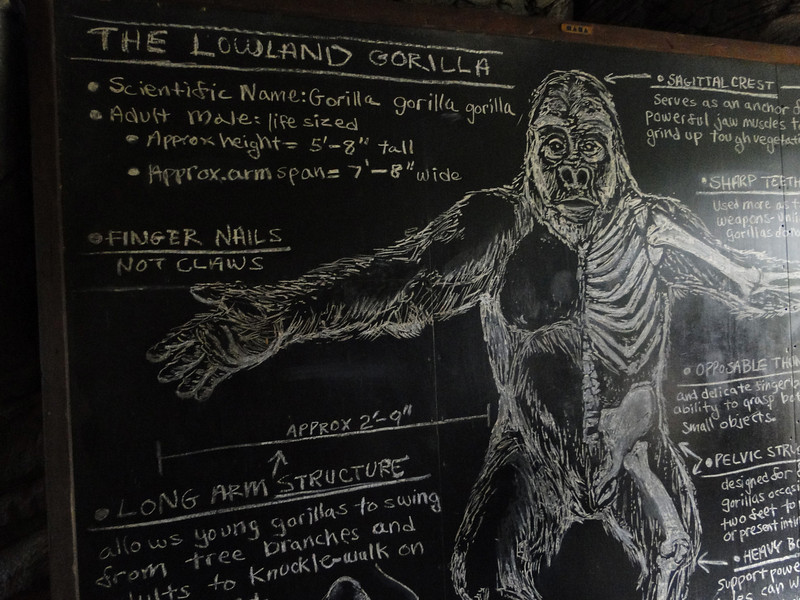 THE LOWLAND GORILLA
• Scientific Name: Gorilla gorilla gorilla,
• Adult Male: life sized
• Approx height = 5'-8" tall
• Approx. arm span = 7'-8" wide
• FINGER NAILS
NOT CLAWS
APPROX 2'-9"
• LONG ARM STRUCTURE
allows young gorillas to swing
from tree branches and
adults to knuckle-walk on
• SAGITTAL CREST
Serves as an anchor
Powerful jaw muscles
grind up tough
• SHARP TEETH
Used more as
weapons-
Gorillas
• OPPOSABLE
and delicate finger
ability to grasp
small objects.
• PELVIC
designed for
gorillas
two feet to
or present
• HEAVY
support
can